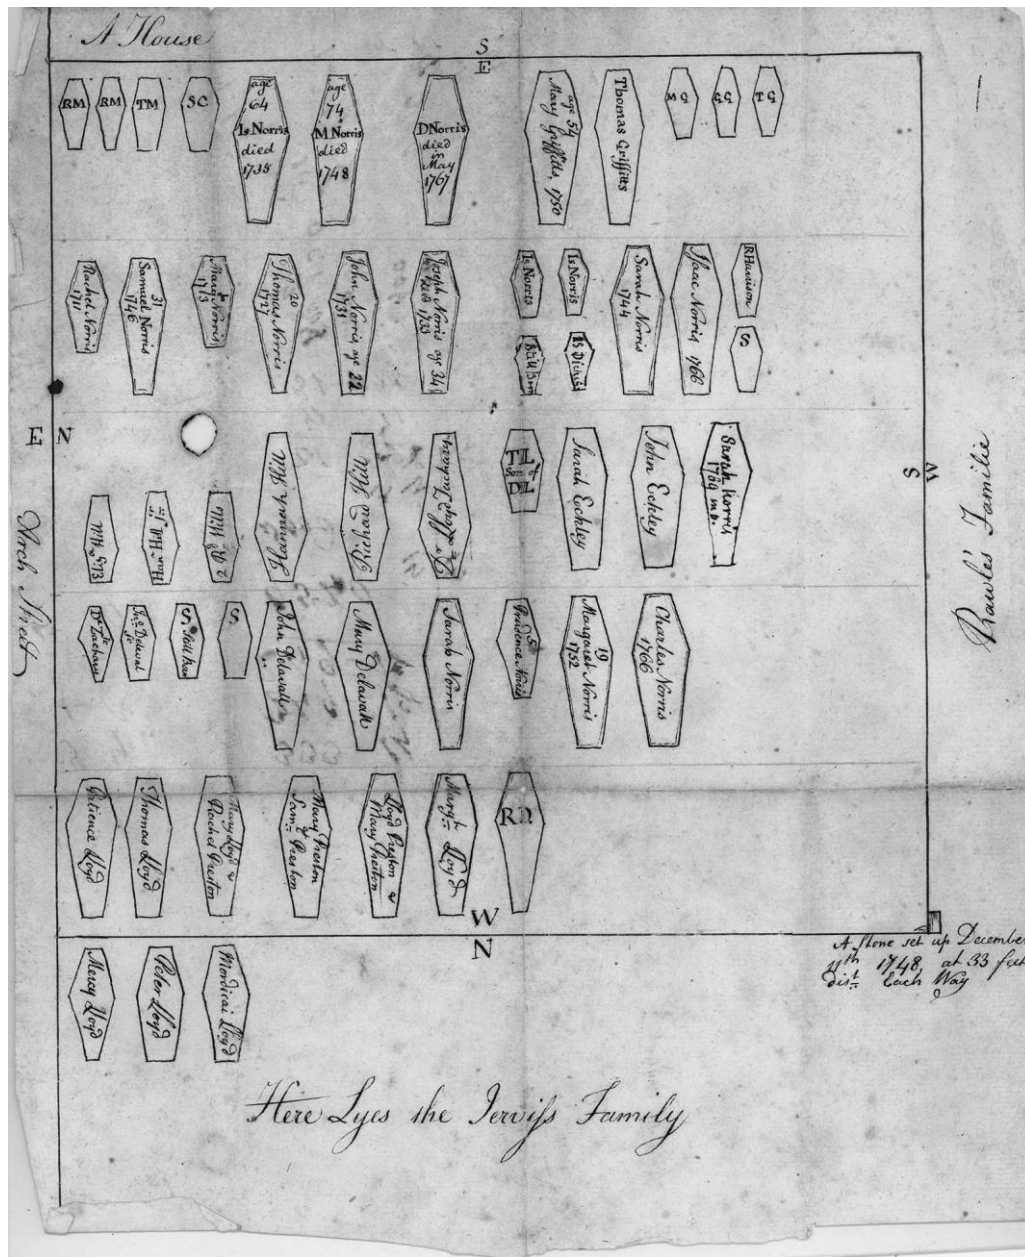 A House
S
E
RM
RM
TM
SC
age
64
Is Norris
died
1735
age
74
M Norris
died
1748
DNorris
died
in
May
1767
age 54
Mary Griffitts, 1750
Thomas Griffitts
MG
GG
TG
Rachel Norris
1711
31
Samuel Norris
1746
Mary Norris
1713
20
Thomas Norris
1727
John Norris age 22
1731
Joseph Norris age 34
died 1733
Is Norris
Is Norris
Sarah Norris
1744
Isaac Norris 1766
RHarrison
S
E N
S W
Arch Street
Rawle's Familie
Hannah Hill
Richard Hill
Dd. Lloyd Zachary
TL
Son of
DL
Sarah Eckley
John Eckley
Sarah Norris
1769
Zachary
Jno. Delaval
S. Still Bor
S
John Delavall
Mary Delavall
Sarah Norris
5
Prudence Norris
19
Margaret Norris
1752
Charles Norris
1766
Patience Lloyd
Thomas Lloyd
Mary Lloyd &
Rachel Preston
Mary Preston
of
Saml. Preston
Lloyd Preston &
Mary Preston
Margtt. Lloyd
RN
W
N
A Stone set up December
11th 1748, at 33 feet
dist. Each Way
Mercy Lloyd
Peter Lloyd
Mordicai Lloyd
Here Lyes the Jerviss Family